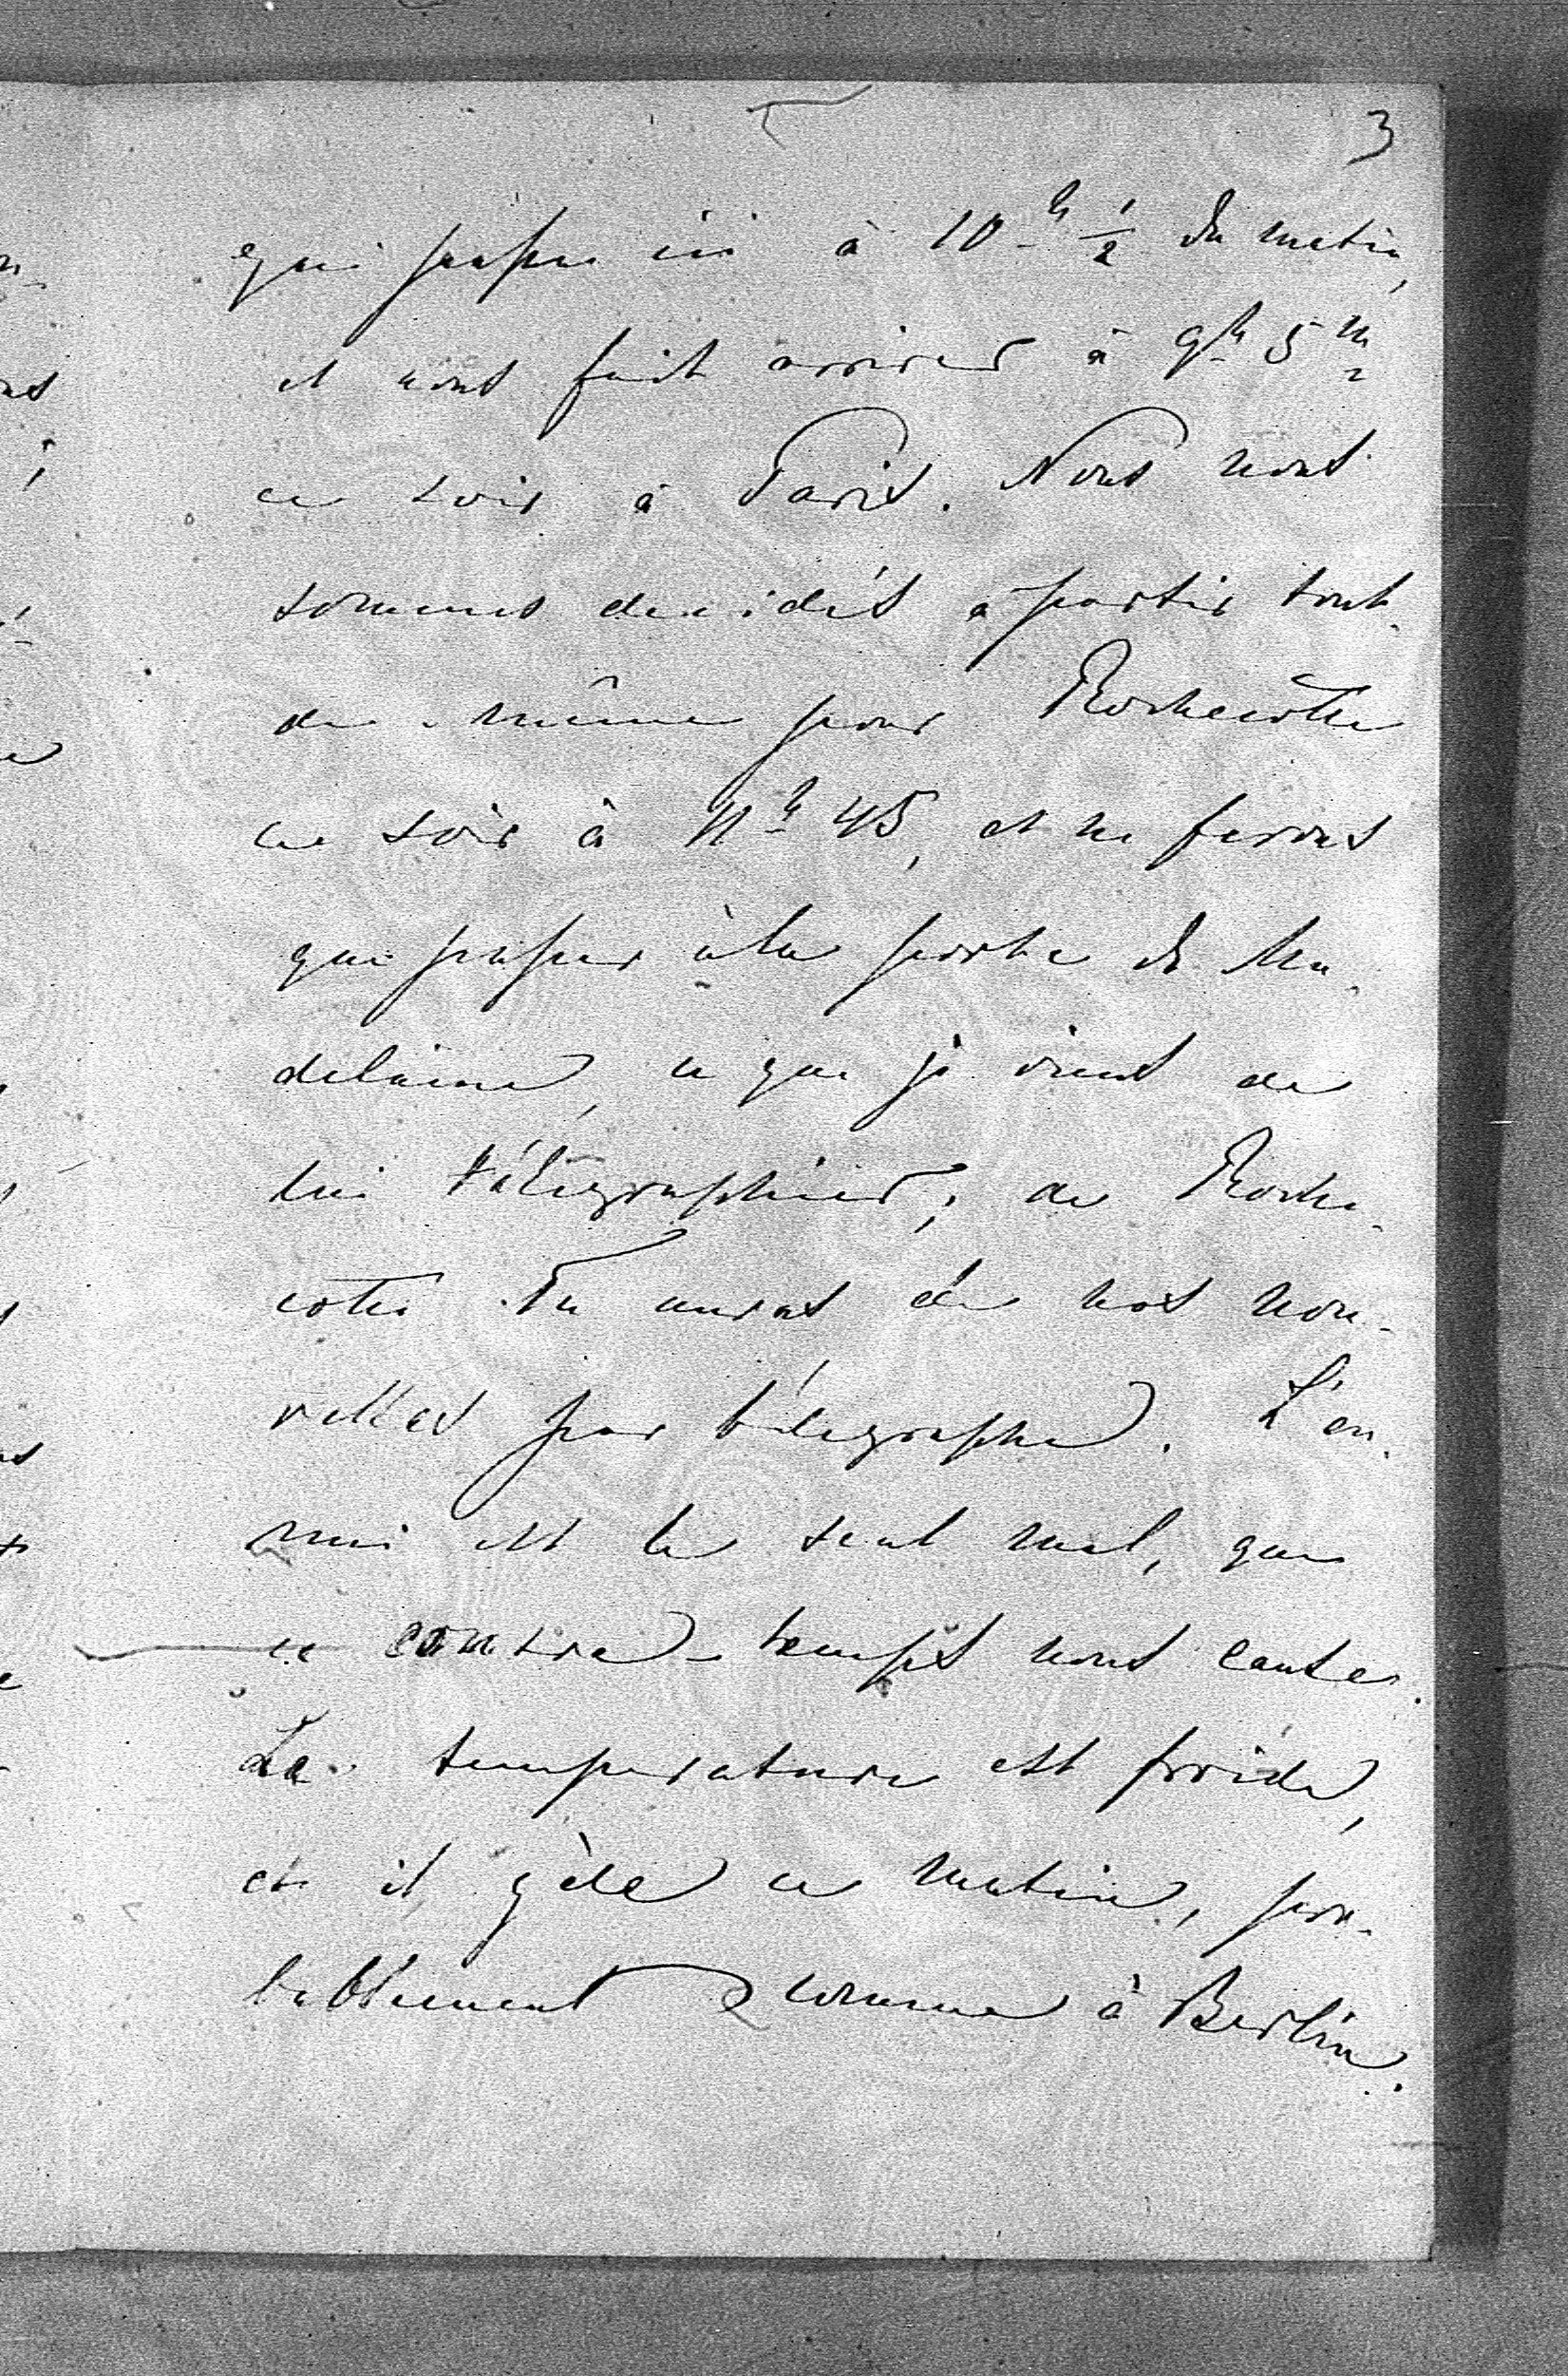 3
qui passe ici à 10h 1/2 du matin,
et nous fait arriver à 9h 5m
ce soir à Paris. Nous nous
sommes décidés à partir tout-
de-même pour Rochecotte
ce soir à 11h 45, et ne ferons
que passer à la porte de Ma-
delaine, ce que je viens de
lui télégraphier; de Roche-
cotte Tu auras de nos nou-
velles par télégraphe. L'en-
nui est le seul mal, que
ce contre-temps nous cause.
La temperature est froide,
et il gèle ce matin, pro-
bablement comme à Berlin.